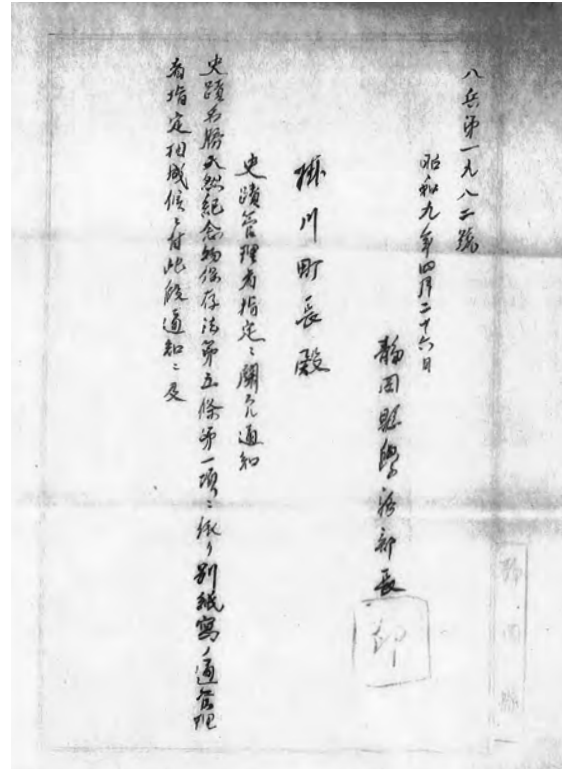 八兵第一九八二號
昭和九年四月二十六日
靜岡縣學務部長
印
掛川町長殿
史蹟管理者指定ニ關スル通知
史蹟名勝天然紀念物保存法第五條第一項ニ依リ別紙寫ノ通管理
者指定相成候ニ付此段通知ニ及
靜岡縣